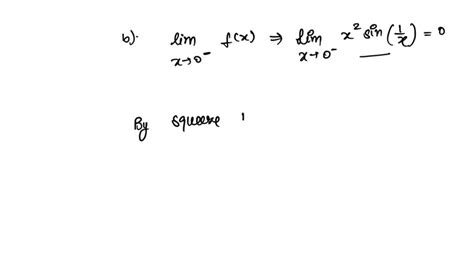 b). lim x→0⁻ f(x) ⇒ lim x→0⁻ x² sin(1/x) = 0
By squeeze